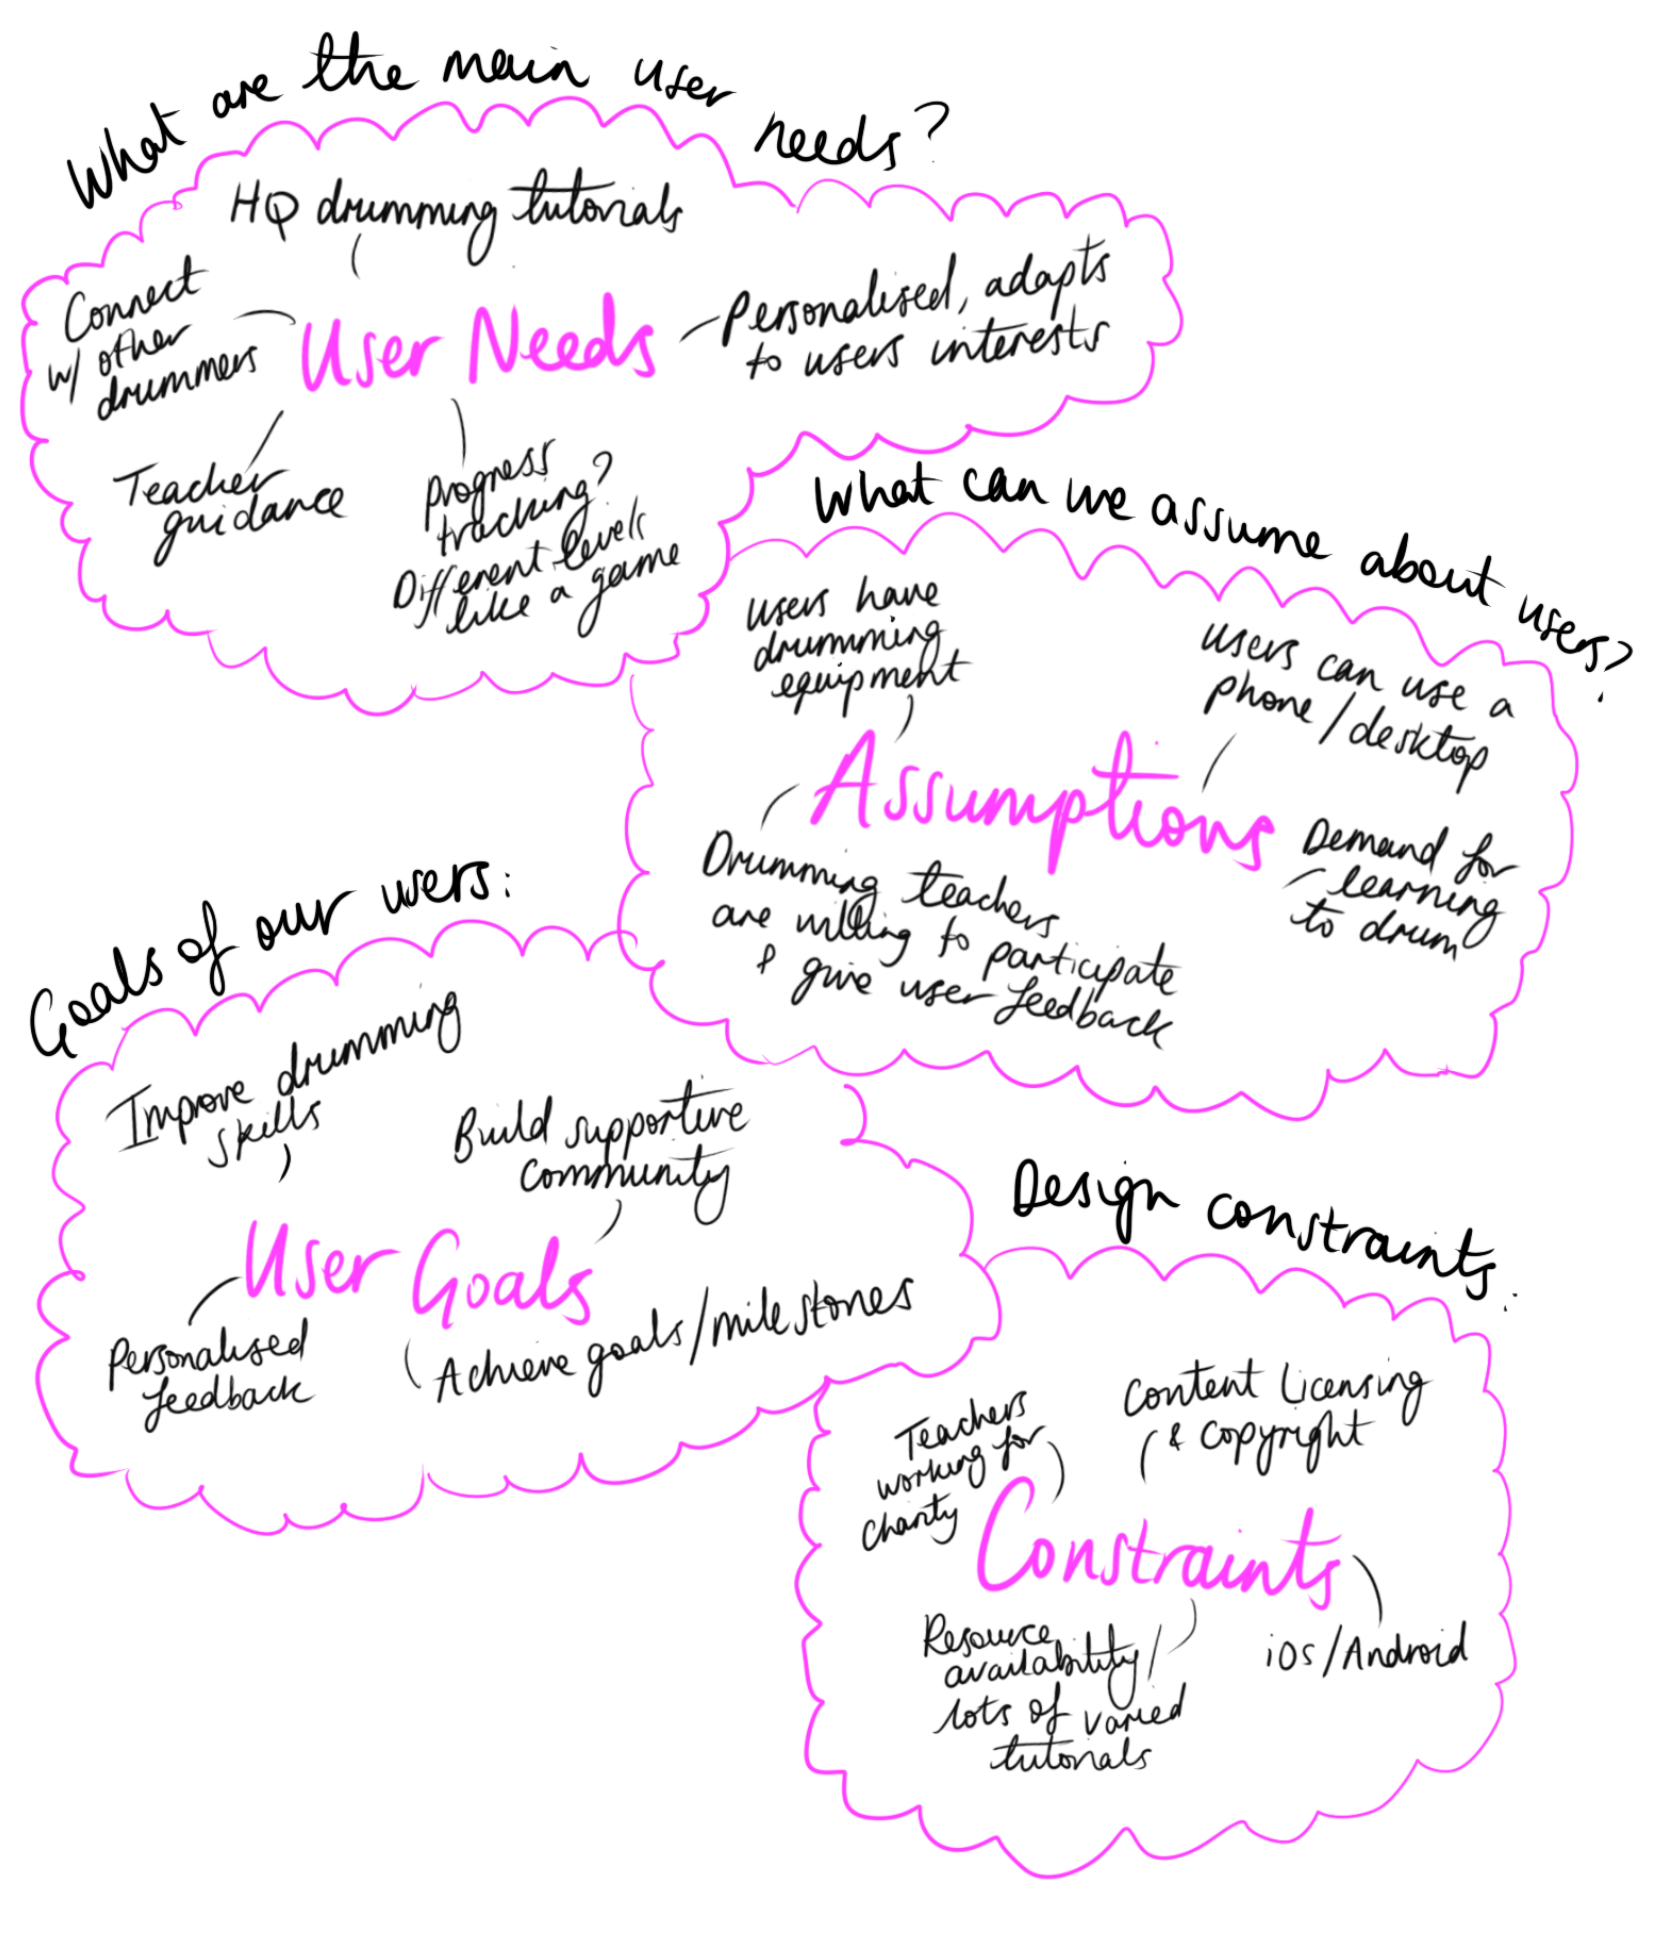 What are the main user needs?
HQ drumming tutorials
Connect
w/ other
drummers
User Needs
Personalised, adapts
to users interests
Teacher
guidance
Progress
tracking?
Different levels
like a game
What can we assume about users?
users have
drumming
equipment
users can use a
phone/desktop
Assumptions
Drumming teachers
are willing to participate
& give user feedback
Demand for
learning
to drum
Goals of our users:
Improve drumming
skills
Build supportive
community
User Goals
Personalised
feedback
Achieve goals/milestones
Design constraints:
Teachers
working for
charity
Content Licensing
& copyright
Constraints
Resource
availability/
lots of varied
tutorials
iOS/Android